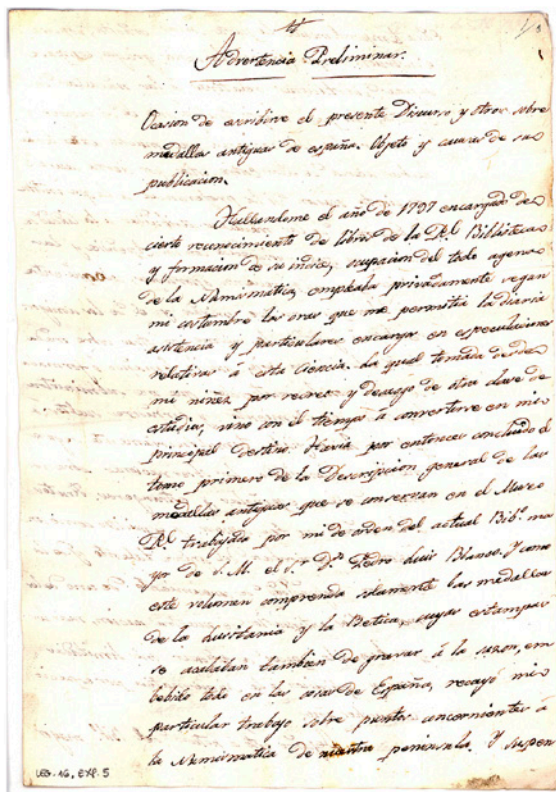 Advertencia Preliminar.
Ocasion de escribirse el presente Discurso y otros sobre
medallas antiguas de españa. Objeto y causas de su
publicacion.
Hallandome el año de 1797 encargado de
cierto reconocimiento de libros de la Rl. Biblioteca
y formacion de su indice, ocupacion del todo agena
de la Numismatica, empleaba privadamente segun
mi costumbre las oras que me permitia la diaria
asistencia y particulares encargos en especulaciones
relativas á esta ciencia. La qual tomada desde
mi niñez por recreo y desaogo de otra clase de
estudios, vino con el tiempo á convertirse en mi
principal destino. Havia por entonces concluido el
tomo primero de la Descripcion general de las
medallas antiguas que se conservan en el Museo
Rl. trabajada por mi de orden del actual Bibº. ma
yor de S. M. el Sr. Dn. Pedro Luis Blanco. Y como
este volumen comprenda solamente las medallas
de la Lusitania y la Betica, cuyas estampas
se acababan tambien de gravar á la sazon, em
bebido todo en las cosas de España, recayó mi
particular trabajo sobre puntos concernientes á
la Numismatica de nuestra peninsula. Y supon
LEG. 16, EXP. 5